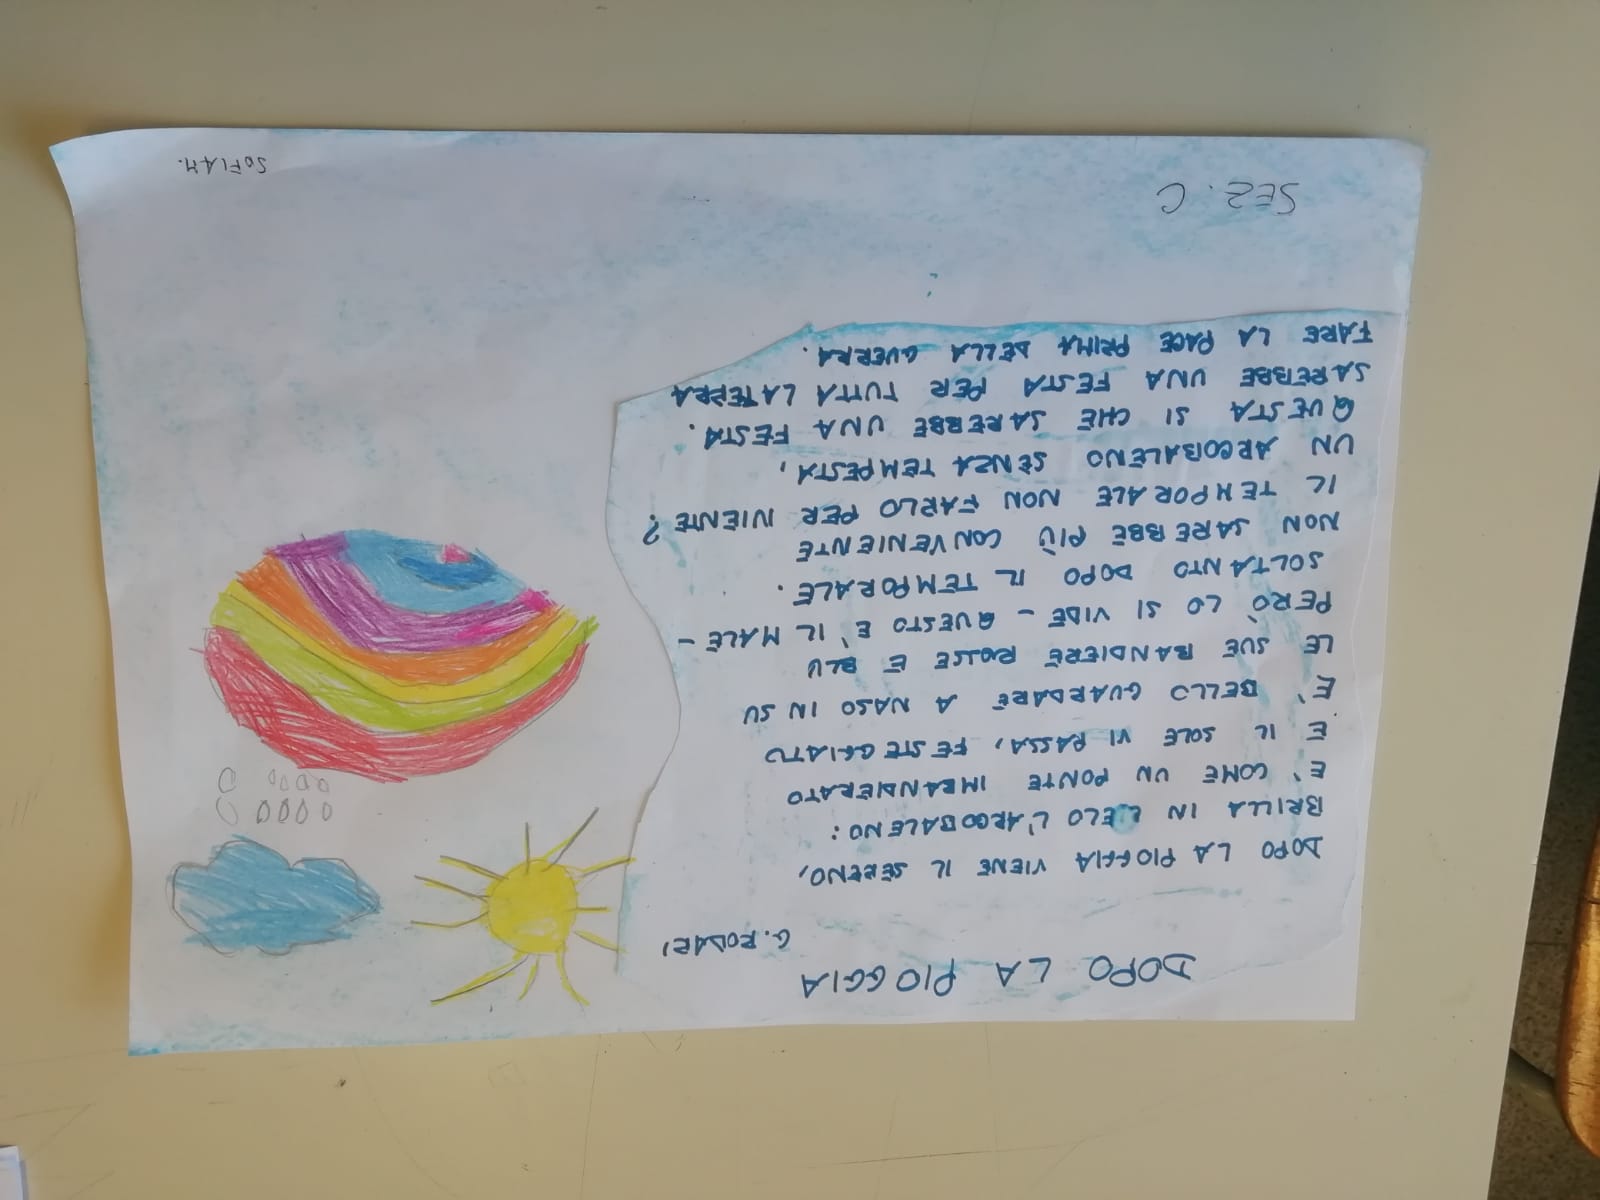 DOPO LA PIOGGIA
G. RODARI
DOPO LA PIOGGIA VIENE IL SERENO,
BRILLA IN CIELO L'ARCOBALENO:
E' COME UN PONTE IMBANDIERATO
E IL SOLE VI PASSA, FESTEGGIATO
E' BELLO GUARDARE A NASO IN SU
LE SUE BANDIERE ROSSE E BLU
PERÒ LO SI VIDE - QUESTO E' IL MALE -
SOLTANTO DOPO IL TEMPORALE.
NON SAREBBE PIÙ CONVENIENTE
IL TEMPORALE NON FARLO PER NIENTE?
UN ARCOBALENO SENZA TEMPESTA,
QUESTA SI CHE SAREBBE UNA FESTA.
SAREBBE UNA FESTA PER TUTTA LA TERRA
FARE LA PACE PRIMA DELLA GUERRA.
SEZ. C
SOFIA M.